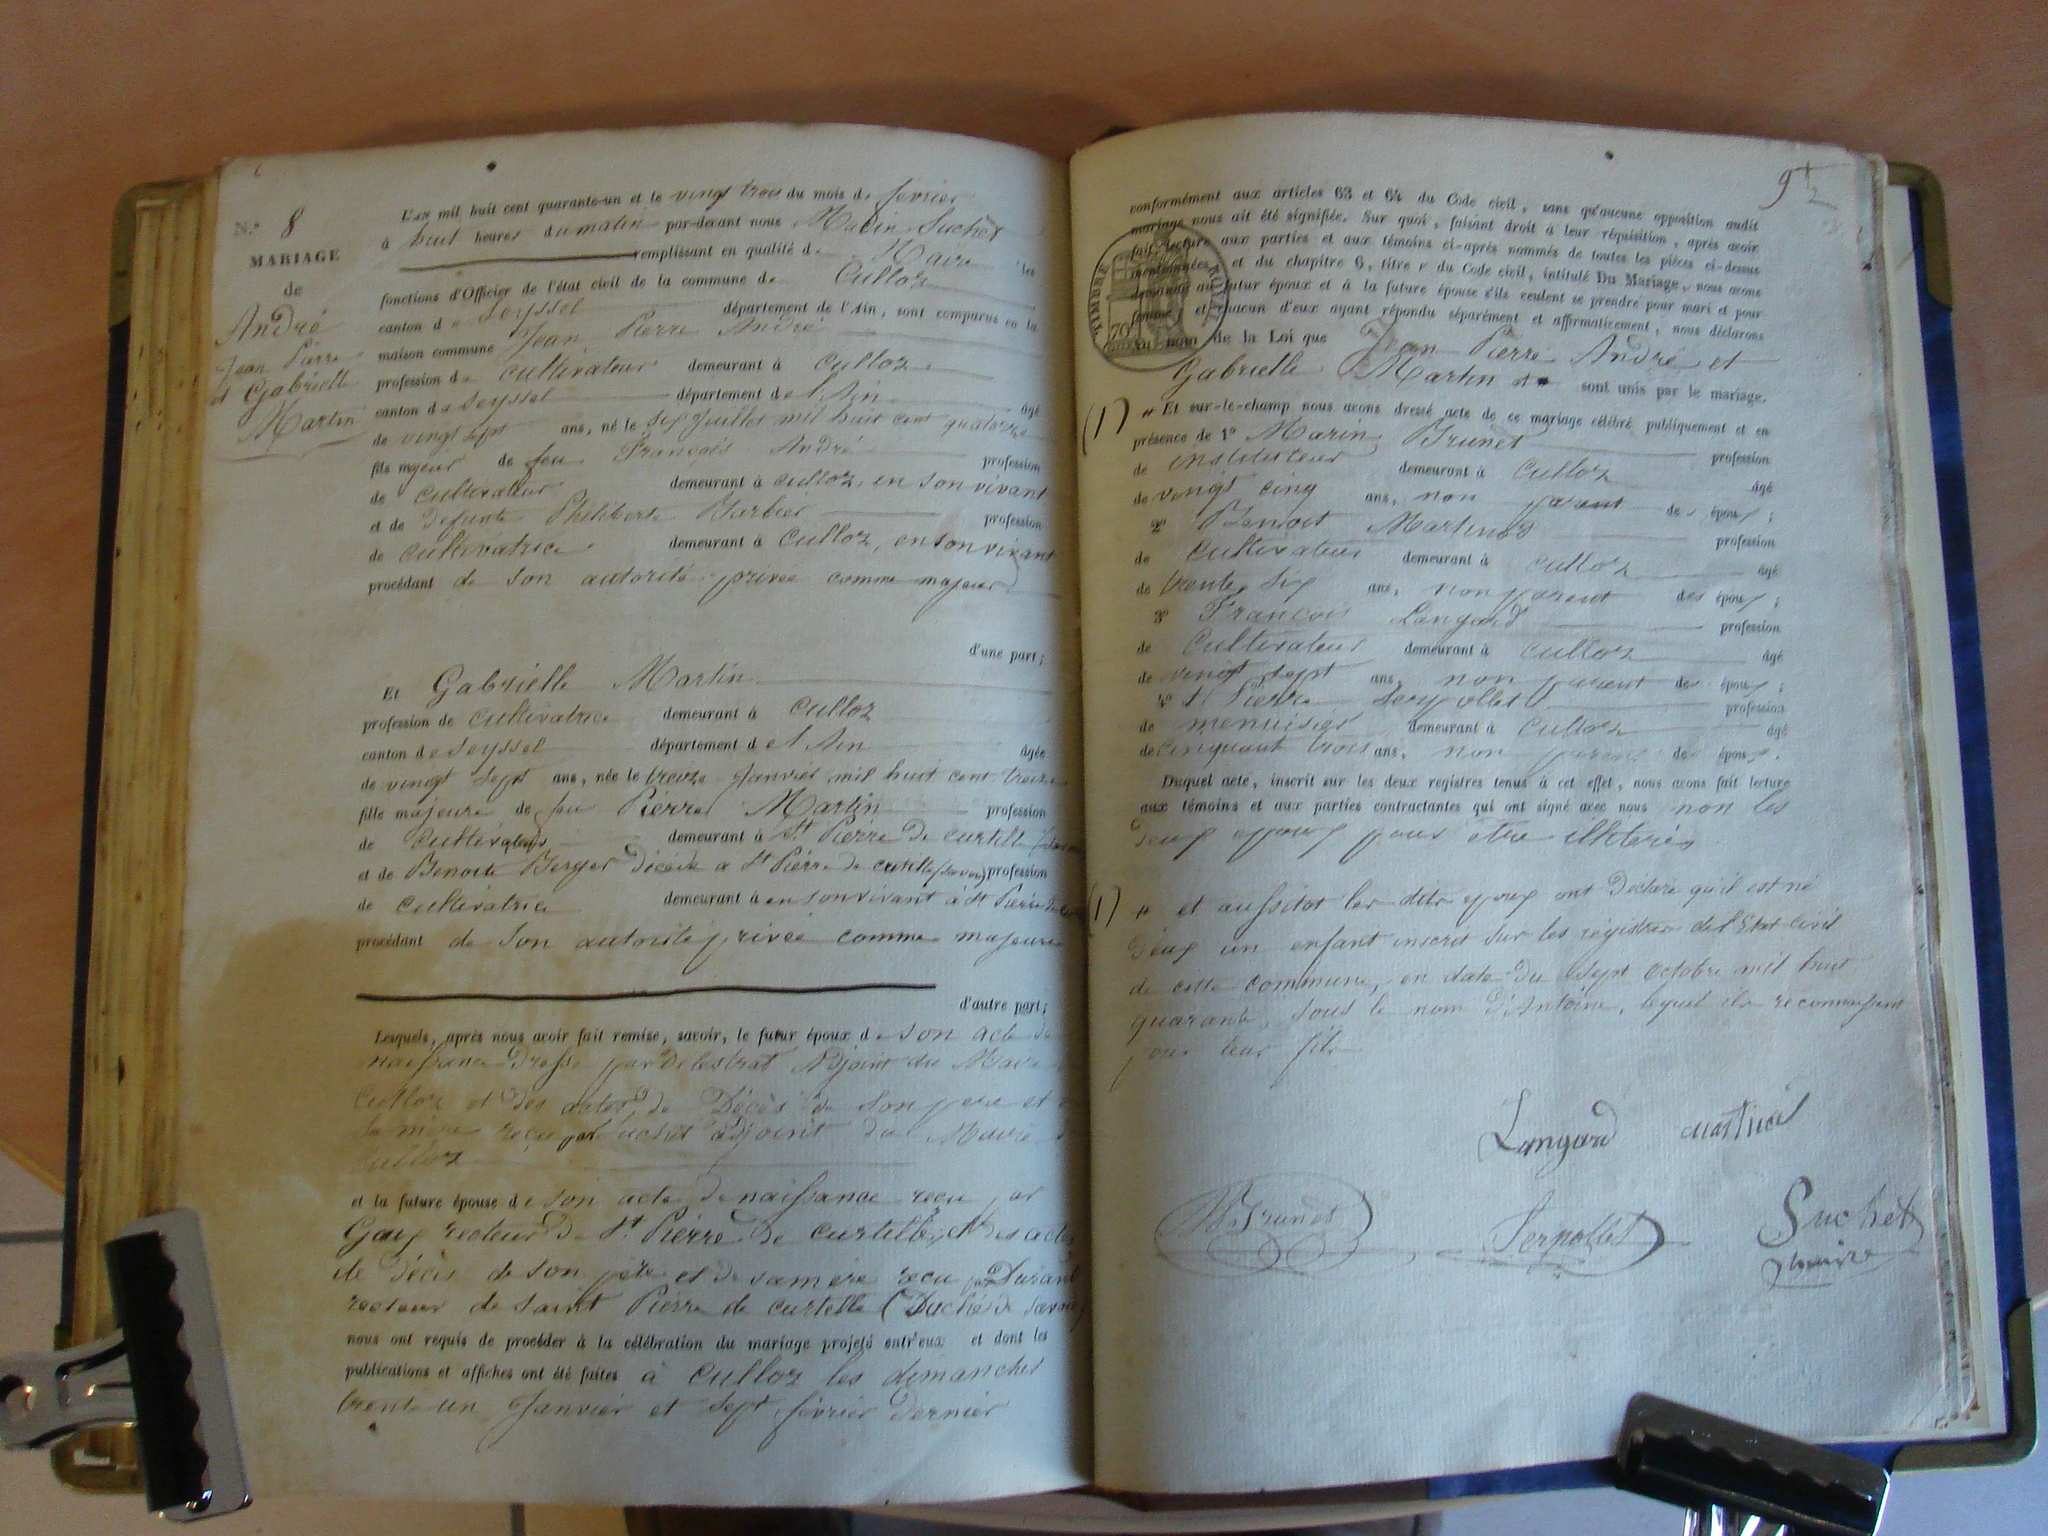 N.° 8
MARIAGE
de
André
Jean Pierre
et Gabrielle
Martin
L'AN mil huit cent quarante-un et le vingt trois du mois de fevrier
à huit heures du matin par-devant nous Marin Suchet
remplissant en qualité de Maire les
fonctions d'Officier de l'état civil de la commune de Culloz
canton de Seyssel département de l'Ain, sont comparus en la
maison commune Jean Pierre André
profession de cultivateur demeurant à culloz
canton de Seyssel département de l'Ain âgé
de vingt sept ans, né le six Juillet mil huit cent quatorze
fils majeur de feu François André profession
de cultivateur demeurant à culloz, en son vivant
et de defunte Philiberte Barbier profession
de cultivatrice demeurant à Culloz, en son vivant
procédant de son autorité privée comme majeur
d'une part;
Et Gabrielle Martin
profession de cultivatrice demeurant à culloz
canton de Seyssel département de l'Ain âgée
de vingt sept ans, née le treize Janvier mil huit cent treize
fille majeure de feu Pierre Martin profession
de cultivateur demeurant à St Pierre de curtille
et de Benoite Berger décédé a St Pierre de curtille (savoie) profession
de cultivatrice demeurant à en son vivant à St Pierre de
procédant de son autorité privée comme majeure
d'autre part;
Lesquels, après nous avoir fait remise, savoir, le futur époux de son acte de
naissance dressé par Delestrat Adjoint du Maire
Culloz et des actes de Décès de son pere et
sa mère reçu par uchet adjoint du Maire
culloz
et la future épouse de son acte de naissance reçu par
Gay recteur de St Pierre de curtille, et des actes
de décès de son père et de sa mère reçu par Durand
recteur de saint Pierre de curtille (Duché de savoie)
nous ont requis de procéder à la célébration du mariage projeté entr'eux et dont les
publications et affiches ont été faites à culloz les dimanches
trente un Janvier et sept février dernier
9
conformément aux articles 63 et 64 du Code civil, sans qu'aucune opposition audit
mariage nous ait été signifiée. Sur quoi, faisant droit à leur réquisition, après avoir
fait lecture aux parties et aux témoins ci-après nommés de toutes les pièces ci-dessus
mentionnées, et du chapitre 6, titre v du Code civil, intitulé Du Mariage, nous avons
demandé au futur époux et à la future épouse s'ils veulent se prendre pour mari et pour
femme, et chacun d'eux ayant répondu séparément et affirmativement, nous déclarons
au nom de la Loi que Jean Pierre André et
Gabrielle Martin sont unis par le mariage.
TIMBRE ROYAL
(1) # Et sur-le-champ nous avons dressé acte de ce mariage célébré publiquement et en
présence de 1° Marin Brunet profession
de instituteur demeurant à culloz âgé
de vingt cinq ans, non parent des époux;
2° Benoit Martinod profession
de cultivateur demeurant à culloz âgé
de trente six ans, non parent des époux;
3° François Langard profession
de Cultivateur demeurant à culloz âgé
de vingt sept ans, non parent des époux;
4° et Pierre Serpollet profession
de menuisier demeurant à culloz âgé
de cinquant trois ans, non parent des époux.
Duquel acte, inscrit sur les deux registres tenus à cet effet, nous avons fait lecture
aux témoins et aux parties contractantes qui ont signé avec nous non les
deux epoux pour être illeterés
(1) # et aussitot les dits epoux ont déclaré qu'il est né
d'eux un enfant inscrit sur les registres de l'Etat Civil
de cette commune, en date du sept octobre mil huit
quarante, sous le nom d'Antoine, lequel ils reconnaissent
pour leur fils
Langard
Brunet
Serpollet
Suchet
maire